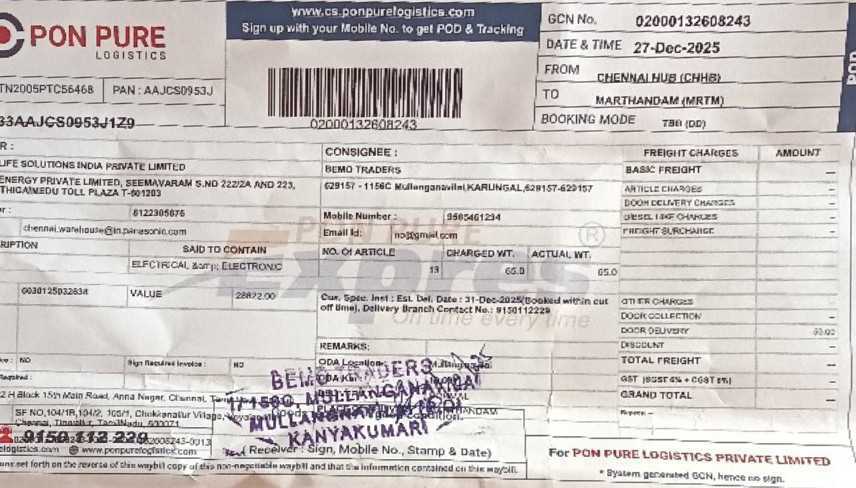 PON PURE
LOGISTICS
www.cs.ponpurelogistics.com
Sign up with your Mobile No. to get POD & Tracking
02000132608243
GCN No. 02000132608243
DATE & TIME 27-Dec-2025
FROM CHENNAI HUB (CHHB)
TO MARTHANDAM (MRTM)
BOOKING MODE TBB (DD)
POD
TN2005PTC56468 PAN : AAJCS0953J
33AAJCS0953J1Z9
R :
LIFE SOLUTIONS INDIA PRIVATE LIMITED
ENERGY PRIVATE LIMITED, SEEMAVARAM S.NO 222/2A AND 223,
TOLL PLAZA T-601203
8122305876
chennai.warehouse@in.panasonic.com
CONSIGNEE :
BEMO TRADERS
629157 - 1156C Mullanganavilai,KARUNGAL,629157-629157
Mobile Number : 9585461234
Email Id: no@gmail.com
RIPTION SAID TO CONTAIN
ELECTRICAL &amp; ELECTRONIC
NO. Of ARTICLE CHARGED WT. ACTUAL WT.
13 65.0 65.0
VALUE 28822.00
PON PURE
Expres ®
On time every time
Cus. Spec. Inst : Est. Del. Date : 31-Dec-2025(Booked within cut
off time). Delivery Branch Contact No.: 9150112229
REMARKS:
ODA Location
: NO Sign Required Invoice : NO
FREIGHT CHARGES AMOUNT
BASIC FREIGHT –
ARTICLE CHARGES –
DOOR DELIVERY CHARGES –
DIESEL HIKE CHARGES –
FREIGHT SURCHARGE –
OTHER CHARGES –
DOOR COLLECTION –
DOOR DELIVERY
DISCOUNT –
TOTAL FREIGHT –
GST (SGST 6% + CGST 6%) –
GRAND TOTAL –
BEMO TRADERS
MULLANGANAVILAI
KANYAKUMARI
H Block 15th Main Road, Anna Nagar, Chennai,
SF NO,104/1R,104/2, 105/1, Chokkanallur Village,
Chennai, Tiruvallur, TamilNadu, 600071
9150 112 229
www.ponpurelogistics.com
(Receiver : Sign, Mobile No., Stamp & Date)
set forth on the reverse of this waybill copy of this non-negotiable waybill and that the information contained on this waybill.
For PON PURE LOGISTICS PRIVATE LIMITED
* System generated GCN, hence no sign.